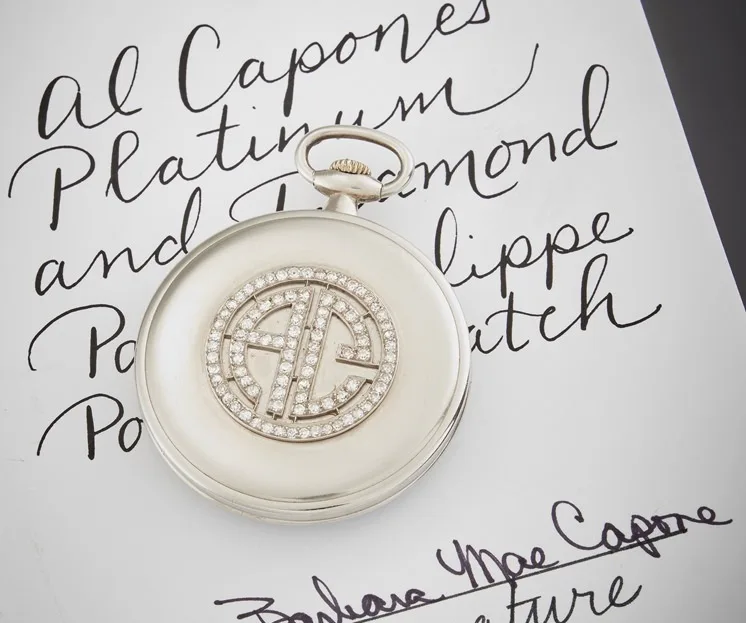 Al Capones
Platinum
and Diamond
Pa lippe
Po atch
Barbara Mae Capone
ature